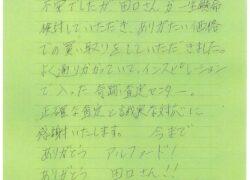 不安でしたが 田口さんが一生懸命
検討していただき、ありがたい価格
での買い取りをしていただきました。
よく通りがかっていて、インスピレーション
で入った 奇跡の査定センター。
正確な査定と誠実な対応に
感謝いたします。 今まで
ありがとう アルファード!
ありがとう 田口さん!!